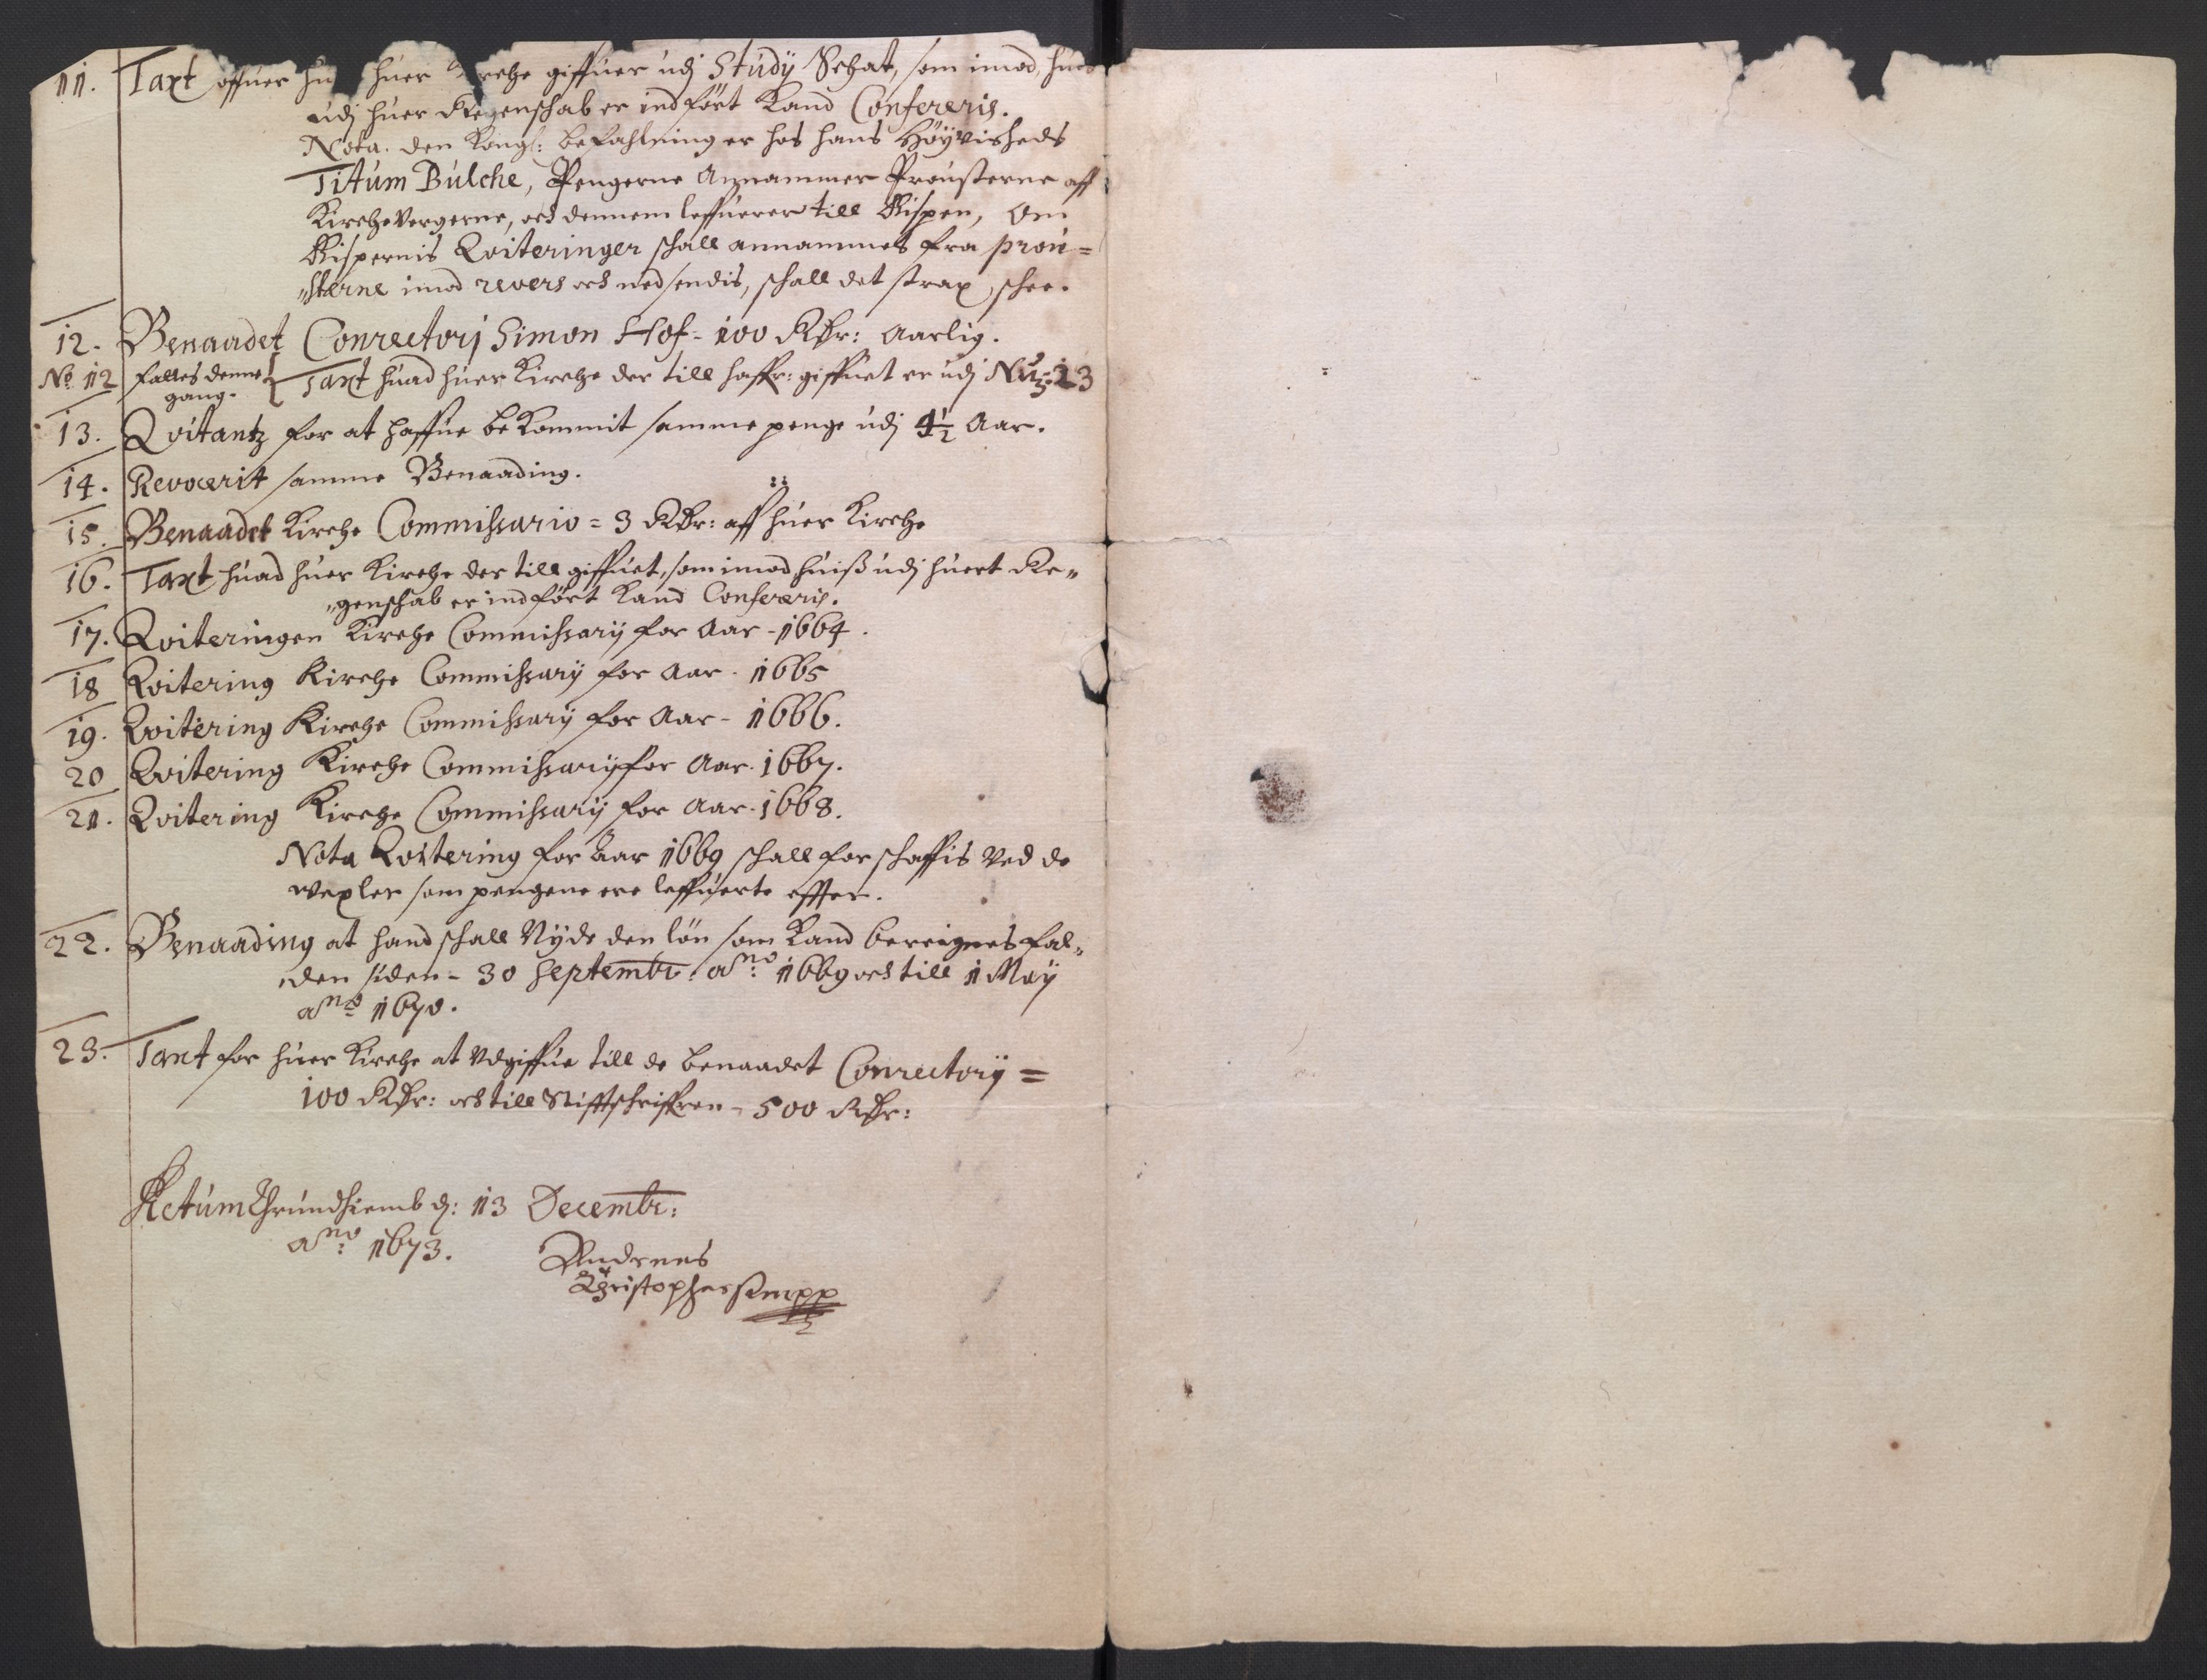 11. Taxt offuer hu huer Kirche giffuer udj Studÿ Schat, som imod hues
udj huer Regenschab er indført Kand Confereris.
Nota. den Kongl: befahlning er hos hans Höÿvisheds
Titum Bulche, Pengerne Annammer Prousterne aff
Kirchevergerne, och dennem leffuerer till Bispen, Om
Bispernis Qviteringer schall annammes fra prou=
"sterne imod revers och nedsendis, schall det strax schee.
12. Benaadet Conrectorj Simon Hof - 100 Rdr: Aarlig.
No 12 falles denne gang. Taxt huad huer Kirche der till haffr: giffuet er udj Nu: 23
13. Qvitantz for at haffue bekommit samme penge udj 4½ Aar.
14. Revocerit samme Benaading.
15. Benaadet Kirche Commissario = 3 Rdr: aff huer Kirche
16. Taxt huad huer Kirche der till giffuet, som imod huiß udj huert Re"
"genschab er indført Kand Confereris.
17. Qviteringen Kirche Commissarÿ for Aar - 1664.
18 Qvitering Kirche Commissarÿ for Aar - 1665
19. Qvitering Kirche Commissarÿ for Aar - 1666.
20 Qvitering Kirche Commissarÿ for Aar - 1667.
21. Qvitering Kirche Commissarÿ for Aar - 1668.
Nota Qvitering for Aar 1669 schall forschaffis Ved de
vexler som pengene ere leffuerte effter.
22. Benaading at hand schall Nÿde den løn som Kand bereignes fal"
"den siden - 30 Septembr: Ano 1669 och till 1 Maÿ
Ano 1670.
23. Taxt for huer Kirche at Udgiffue till de benaadet Conrectorÿ =
100 Rdr: och till Stifftschriffren - 500 Rdr:
Actum Thrundhiemb d: 13 Decembr:
Ano 1673.
Andreas
Christophersen mpp